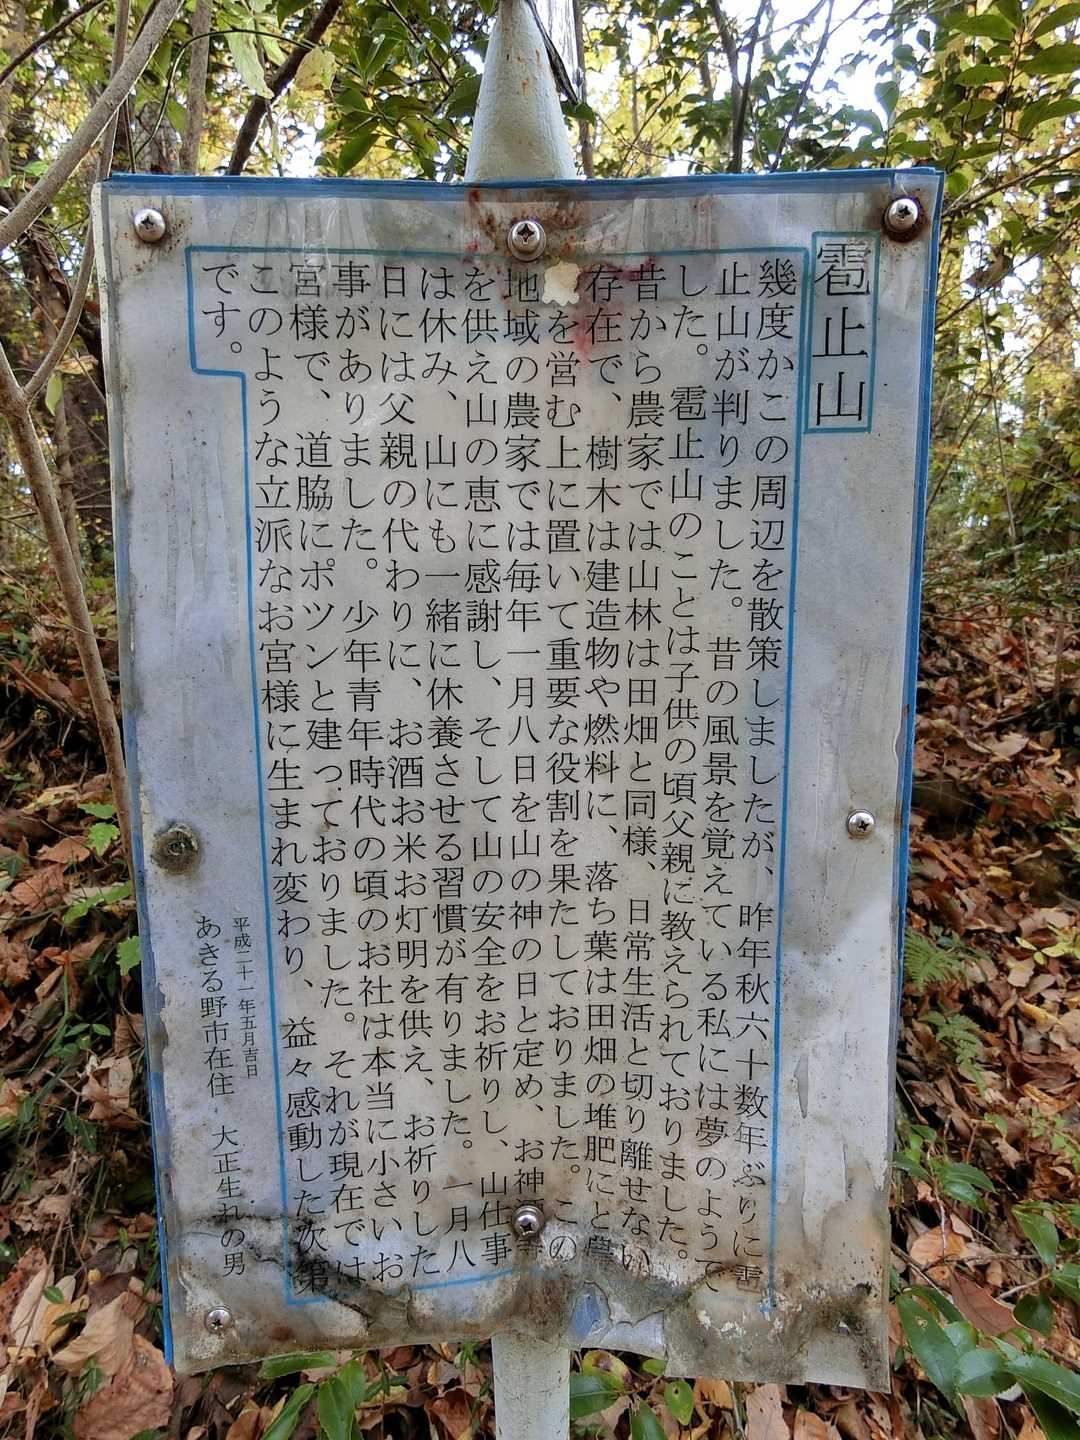 雹止山
幾度かこの周辺を散策しましたが、昨年秋六十数年ぶりに雹
止山が判りました。昔の風景を覚えている私には夢のようで
した。 雹止山のことは子供の頃父親に教えられておりました。
昔から農家では山林は田畑と同様、日常生活と切り離せない
存在で、樹木は建造物や燃料に、落ち葉は田畑の堆肥にと農
を営む上に置いて重要な役割を果たしておりました。この
地域の農家では毎年一月八日を山の神の日と定め、お神酒
を供え山の恵に感謝し、そして山の安全をお祈りし、山仕事
は休み、山にも一緒に休養させる習慣が有りました。一月八
日には父親の代わりに、お酒お米お灯明を供え、お祈りした
事がありました。少年青年時代の頃のお社は本当に小さいお
宮様で、道脇にポツンと建っておりました。それが現在では
このような立派なお宮様に生まれ変わり、益々感動した次第
です。
平成二十一年五月吉日
あきる野市在住 大正生れの男